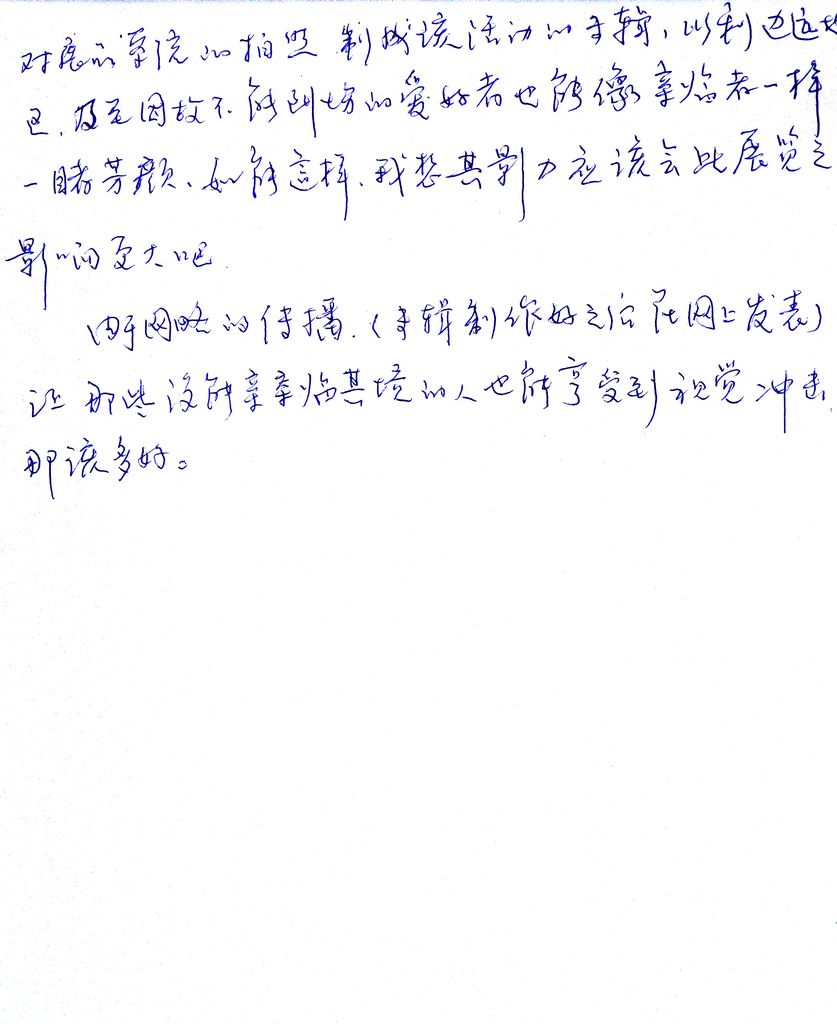 对展品系统的拍照制成该活动的专辑，以利边远地
区、及至因故不能到场的爱好者也能像亲临者一样
一睹芳颜、如能这样、我想其影力应该会比展览之
影响更大吧
由于网络的传播.（专辑制作好之后在网上发表）
让那些没能亲临其境的人也能享受到视觉冲击,
那该多好。